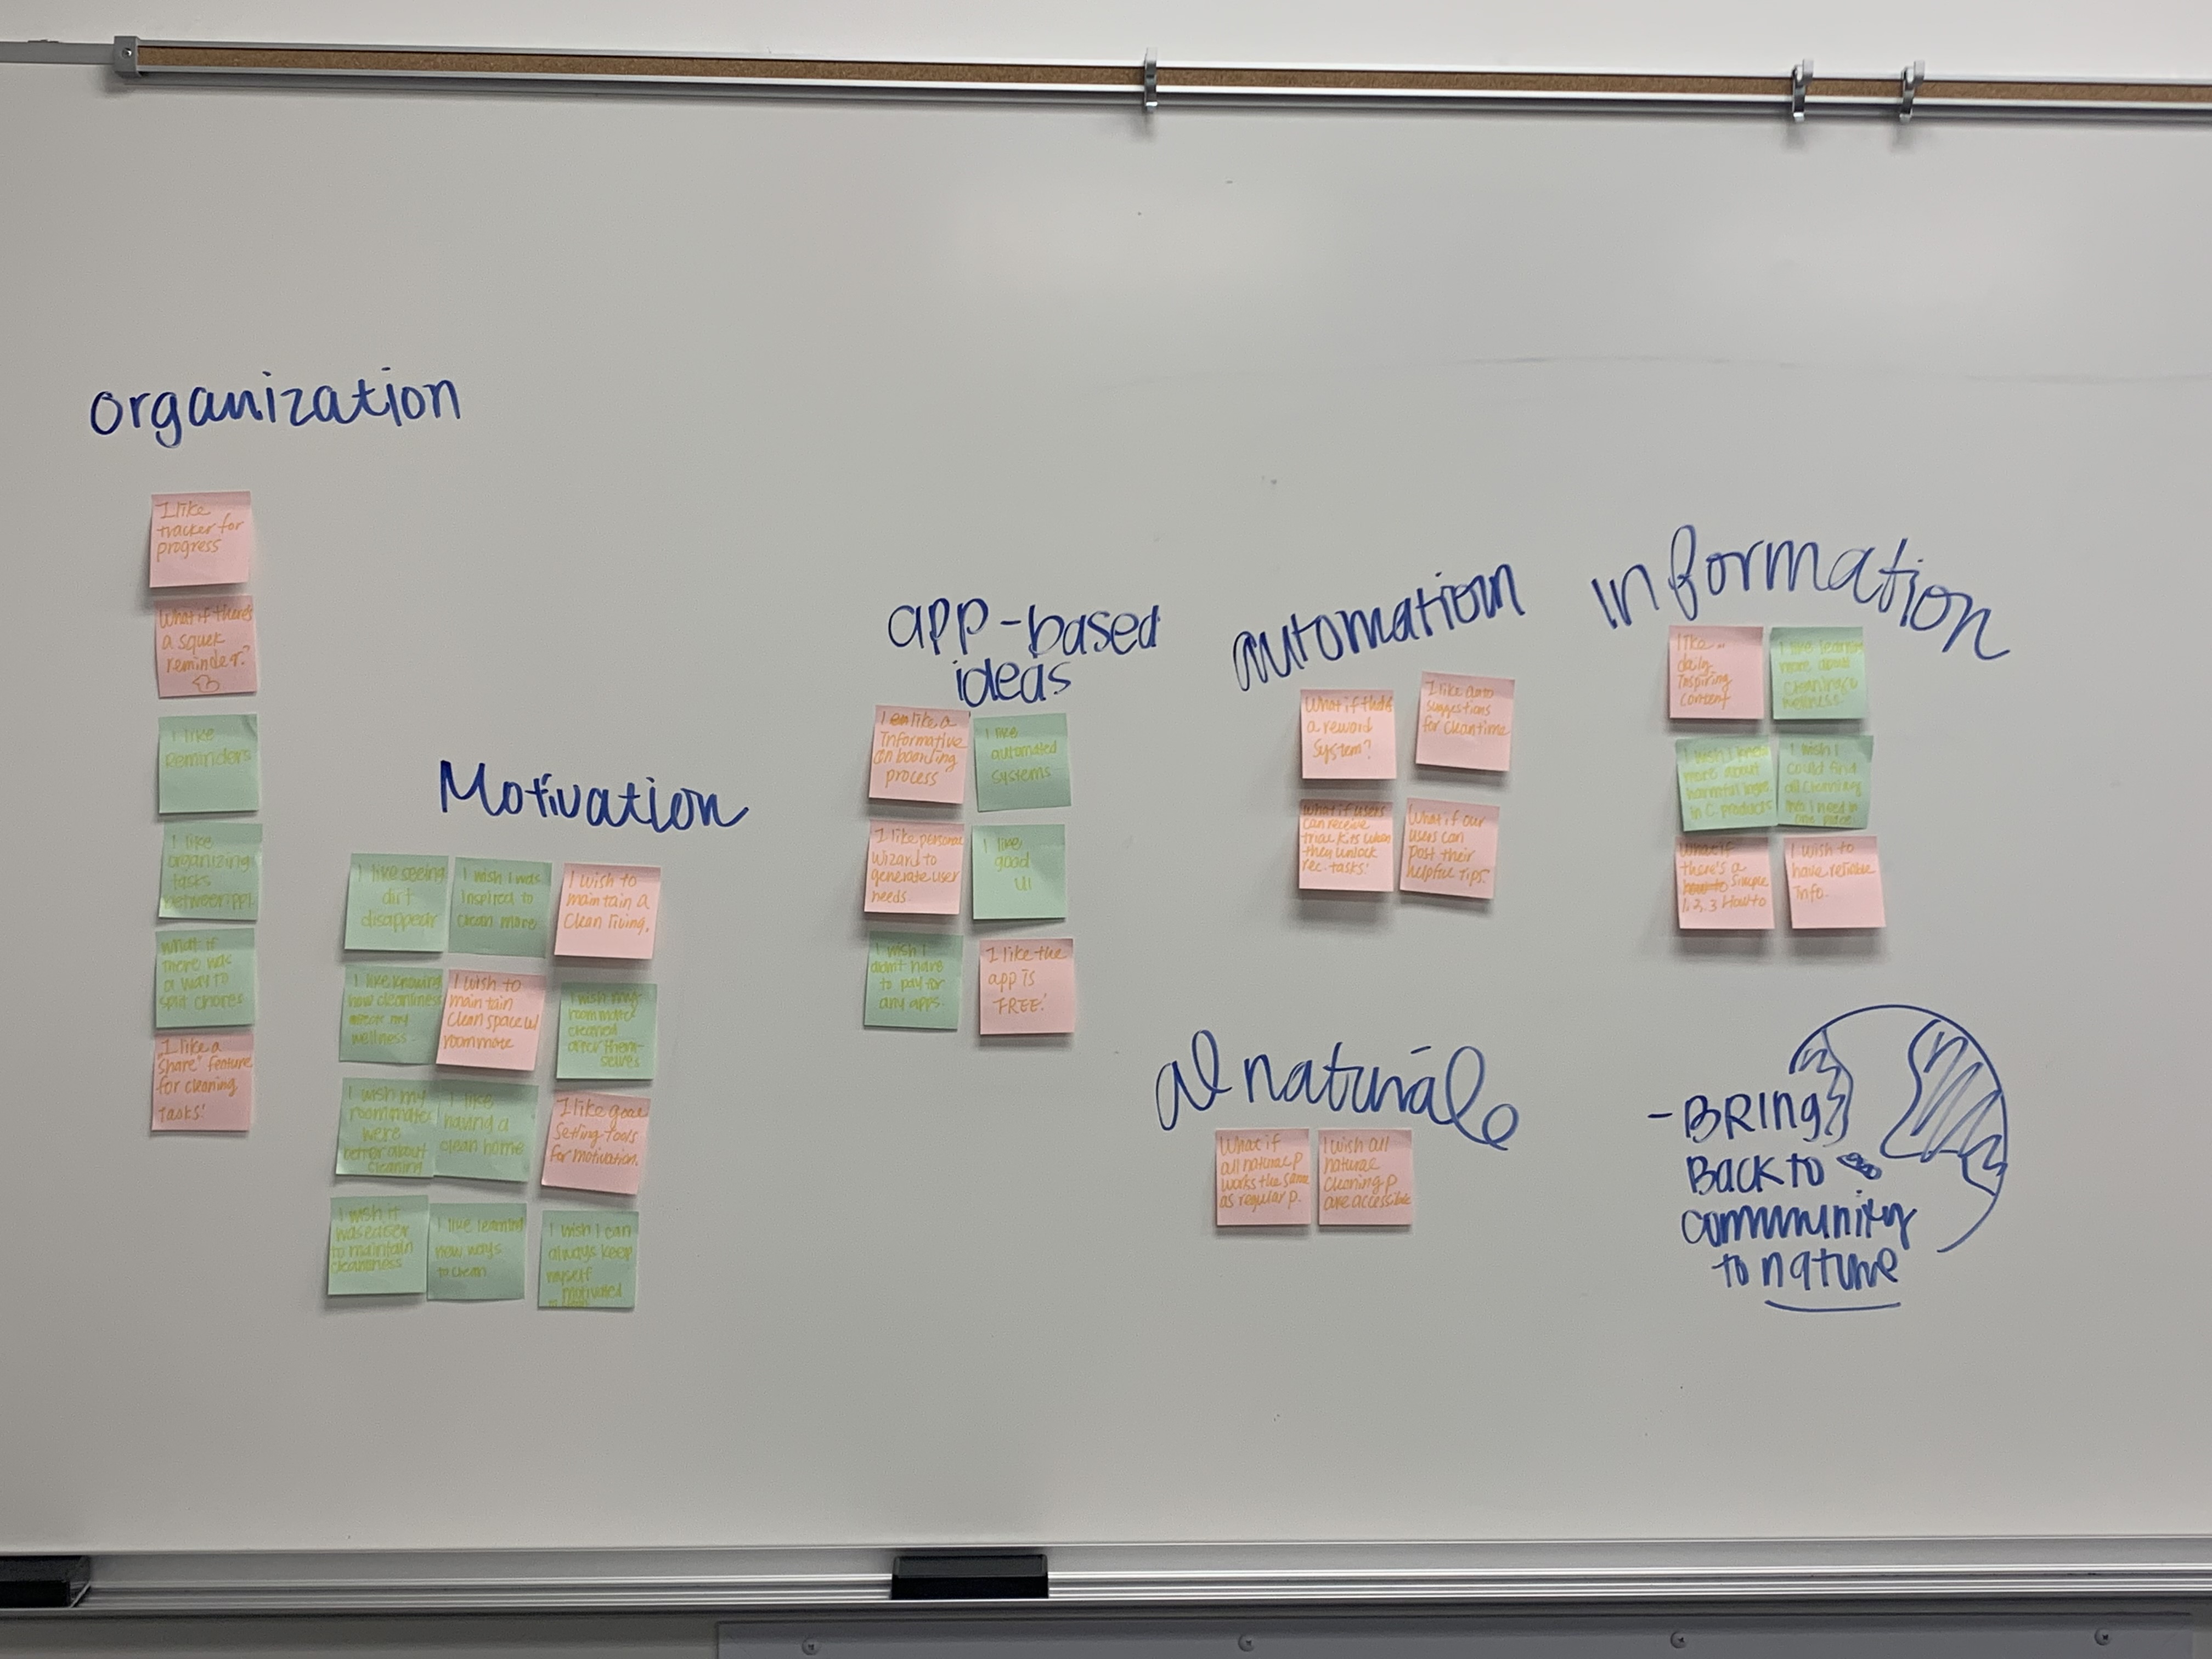 organization
I like
tracker for
progress
What if there's
a squek
reminder?
I like
Reminders
I like
organizing
tasks
between ppl
what if
there was
a way to
split chores
"I like a
Share" feature
for cleaning
tasks!
Motivation
I like seeing
dirt
disappear
I wish I was
Inspired to
clean more
I wish to
maintain a
Clean living.
I like knowing
how cleanliness
my
wellness
I wish to
maintain
Clean space w/
roommate
I wish my
roommates
cleaned
after them-
selves
I wish my
roommates
were
better about
cleaning
I like
having a
clean home
I like goal
Setting tools
for motivation.
I wish it
was easier
to maintain
cleanliness
I like learning
new ways
to clean
I wish I can
always keep
myself
motivated
to clean
app-based
ideas
I like a
Informative
Onboarding
process
I like
automated
systems
I like personal
Wizard to
generate user
needs.
I like
good
UI
I wish I
didn't have
to pay for
any apps.
I like the
app is
FREE!
automation
What if thats
a reward
System?
I like auto
suggestions
for cleantime
What if users
can receive
trial kits when
they unlock
rec. tasks!
What if our
users can
post their
helpful tips.
Information
I like
daily
Inspiring
content
I like learning
more about
cleaning &
wellness
I wish I knew
more about
harmful ingre.
in C. products
I wish I
could find
all cleaning
info I need in
one place
What if
there's a
simple
1, 2, 3 How to
I wish to
have reliable
Info.
al naturále
What if
all natural p
works the same
as regular p.
I wish all
natural
cleaning p
are accessible
- BRing
Back to
community
to nature